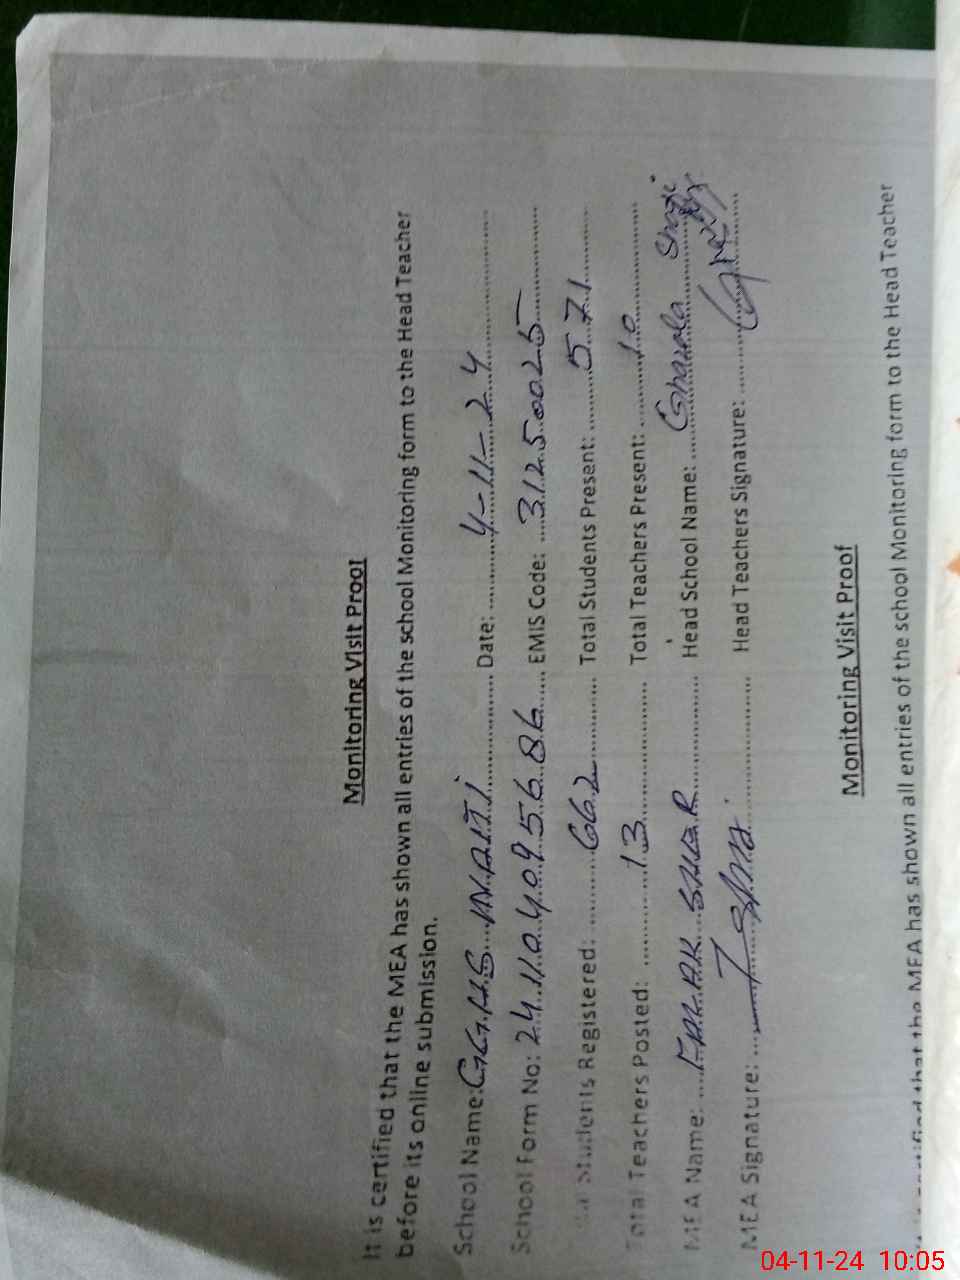 Monitoring Visit Proof
It is certified that the MEA has shown all entries of the school Monitoring form to the Head Teacher
before its online submission.
School Name: GGHS Date: 4-11-24
School Form No: 241104095686 EMIS Code: 31250025
Students Registered: 662 Total Students Present: 571
Total Teachers Posted: 13 Total Teachers Present: 10
MEA Name: Head School Name: Ghazala
MEA Signature: Head Teachers Signature:
Monitoring Visit Proof
certified that the MEA has shown all entries of the school Monitoring form to the Head Teacher
04-11-24 10:05